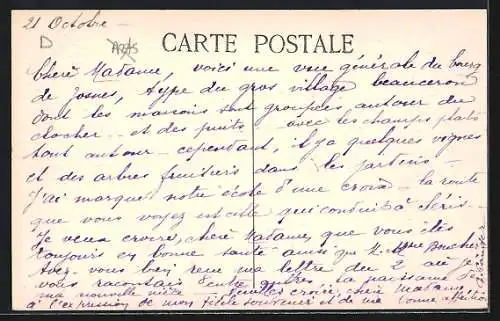 21 Octobre -
D
CARTE POSTALE
Chère Madame, voici une vue générale du bourg
de Josnes, type du gros village beauceron
dont les maisons sont groupées autour du
clocher - et des puits - avec les champs plats
tout autour - cependant, il y a quelques vignes
et des arbres fruitiers dans les jardins -
J'ai marqué notre école d'une croix - la route
que vous voyez est celle qui conduit à Séris -
Je veux croire, chère Madame, que vous êtes
toujours en bonne santé ainsi que M. Mme Boucher
Avez-vous bien reçu ma lettre du 2 où je
vous racontais entre autres la naissance de
ma nouvelle nièce Veuillez croire, chère Madame
à l'expression de mon fidèle souvenir et de ma bonne affection